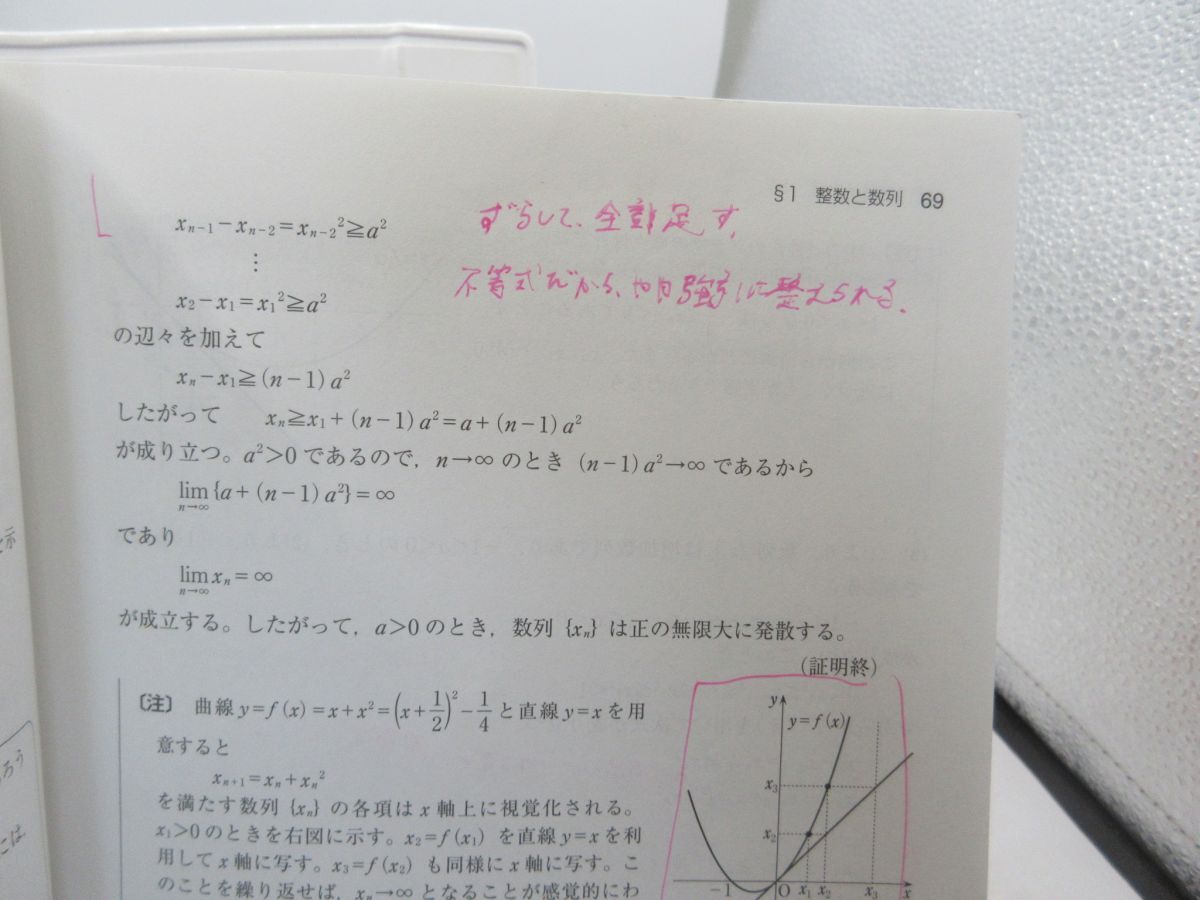 §1 整数と数列 69
xₙ₋₁－xₙ₋₂＝xₙ₋₂²≧a²
ずらして、全部足す。
⋮
不等式だから、やや強引に整えられる。
x₂－x₁＝x₁²≧a²
の辺々を加えて
xₙ－x₁≧(n－1)a²
したがって xₙ≧x₁＋(n－1)a²＝a＋(n－1)a²
が成り立つ。a²＞0 であるので，n→∞ のとき (n－1)a²→∞ であるから
lim n→∞ {a＋(n－1)a²}＝∞
であり
lim n→∞ xₙ＝∞
が成立する。したがって，a＞0 のとき，数列 {xₙ} は正の無限大に発散する。
（証明終）
〔注〕 曲線 y＝f(x)＝x＋x²＝(x＋1/2)²－1/4 と直線 y＝x を用
意すると
xₙ₊₁＝xₙ＋xₙ²
を満たす数列 {xₙ} の各項は x 軸上に視覚化される。
x₁＞0 のときを右図に示す。x₂＝f(x₁) を直線 y＝x を利
用して x 軸に写す。x₃＝f(x₂) も同様に x 軸に写す。こ
のことを繰り返せば，xₙ→∞ となることが感覚的にわ
y
y＝f(x)
x₃
x₂
－1 O x₁ x₂ x₃ x
と示
ろう
には